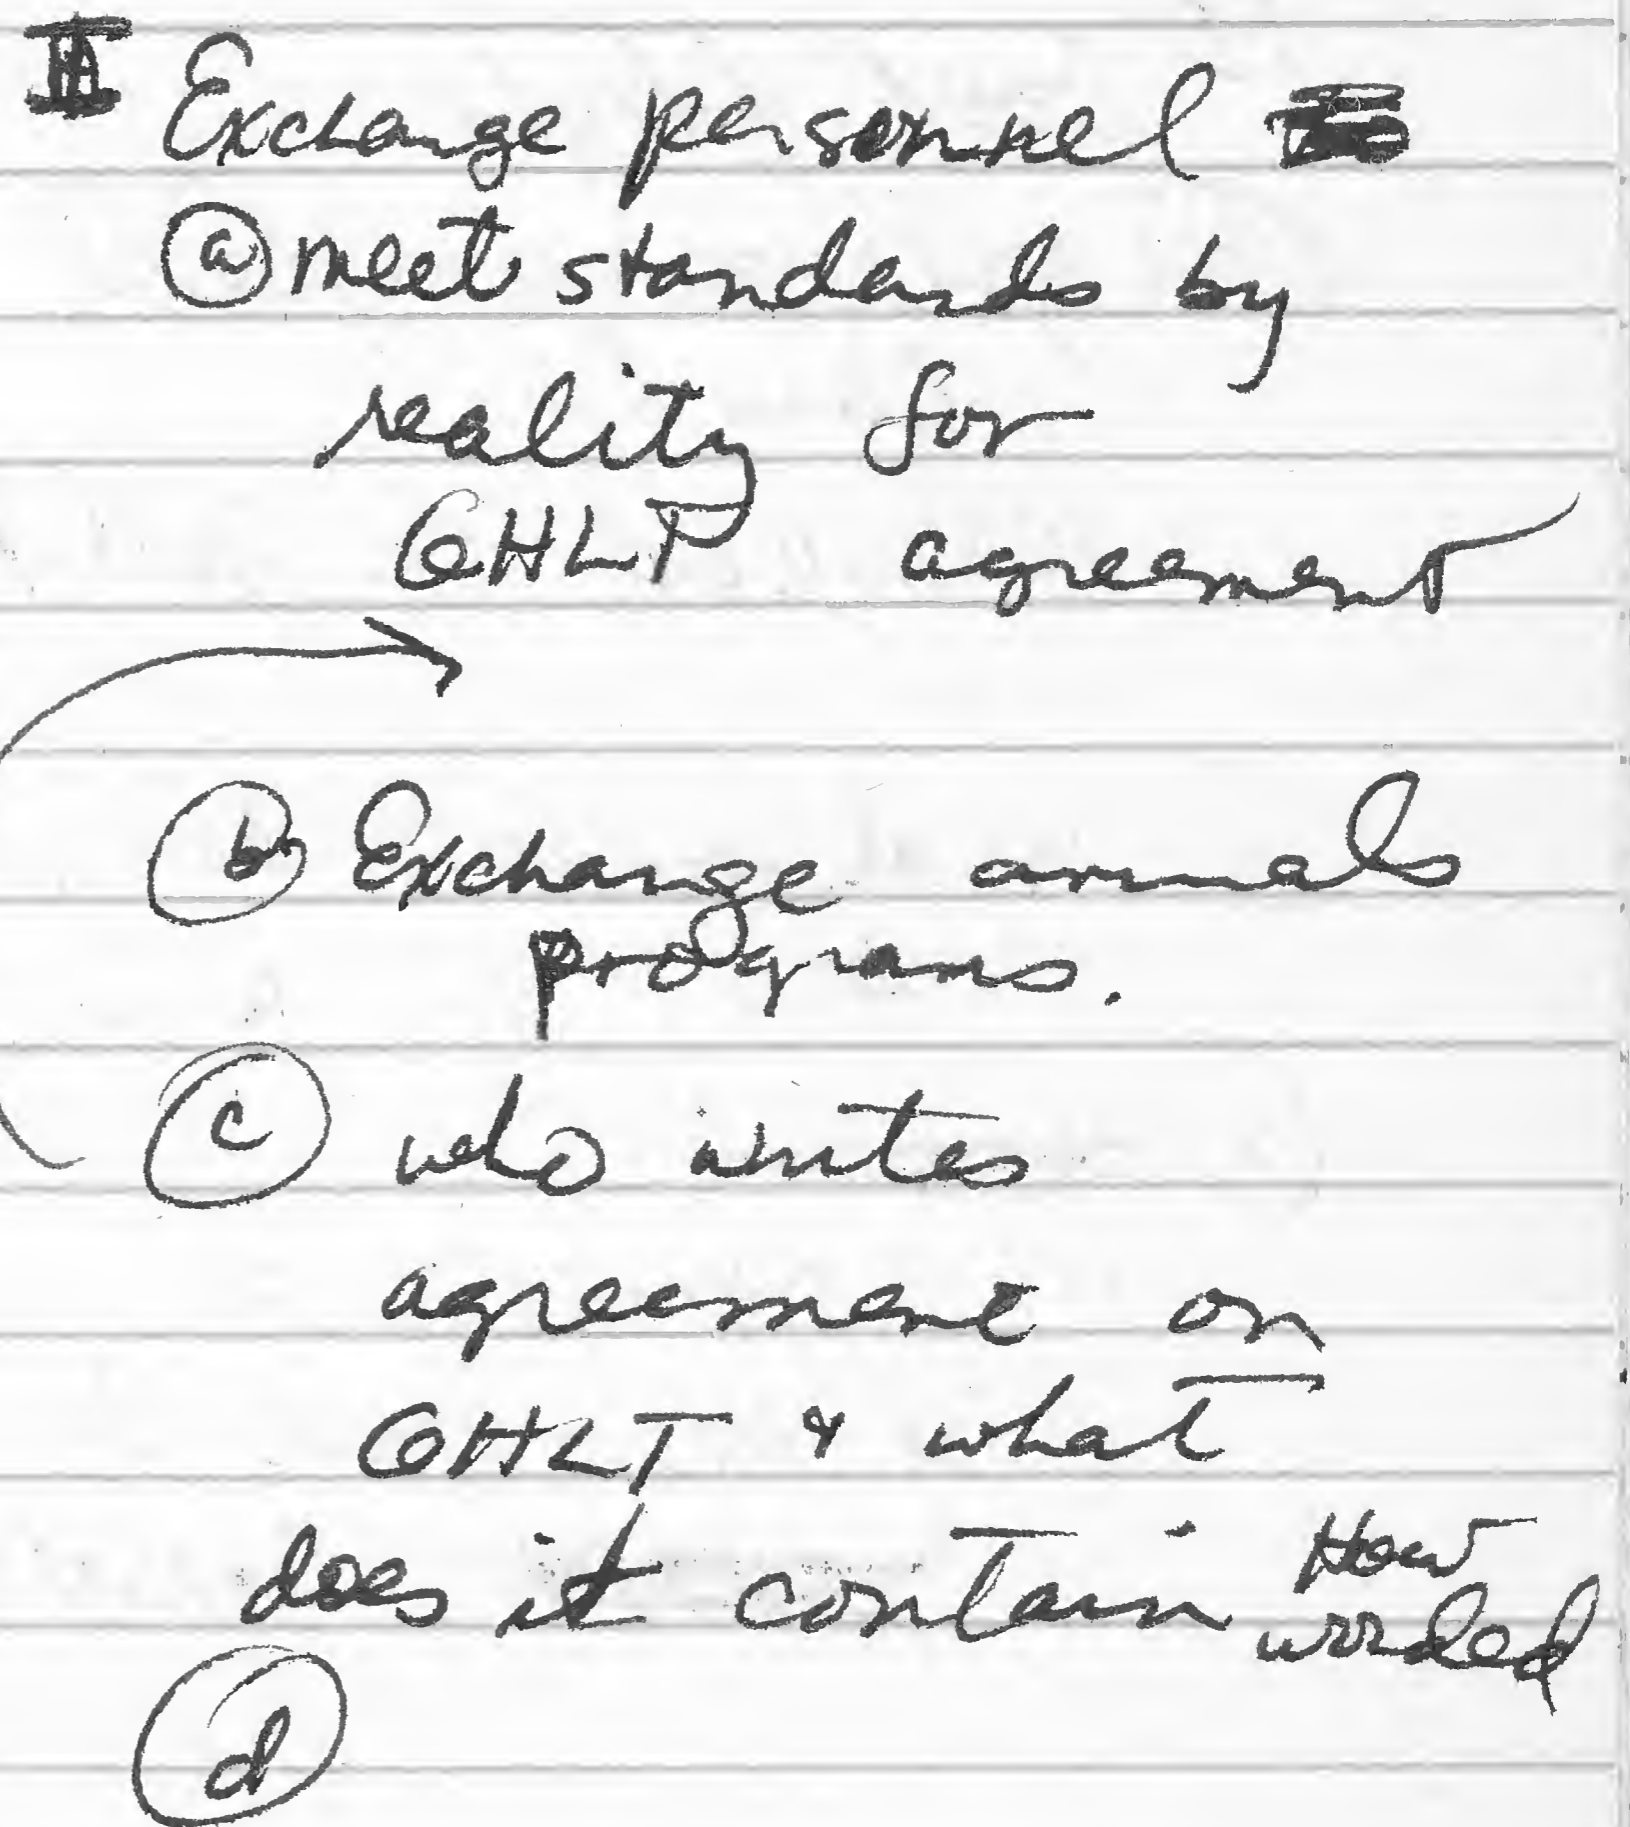 II Exchange personnel
(a) meet standards by
reality for
GHLT agreement
(b) Exchange animals
programs.
(c) who writes
agreement on
GHLT & what
does it contain How
worded
(d)